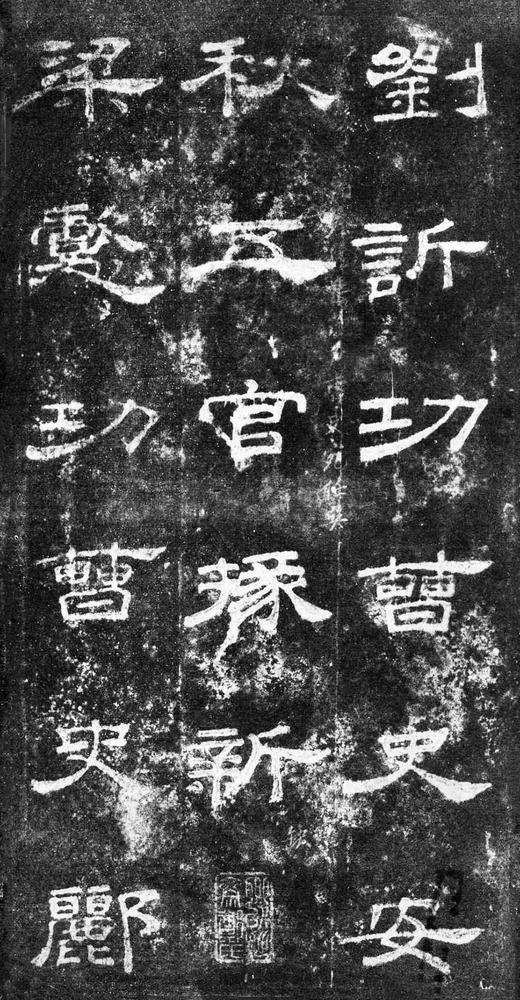 劉訢功曹史安
秋五官掾新
梁懿功曹史酈